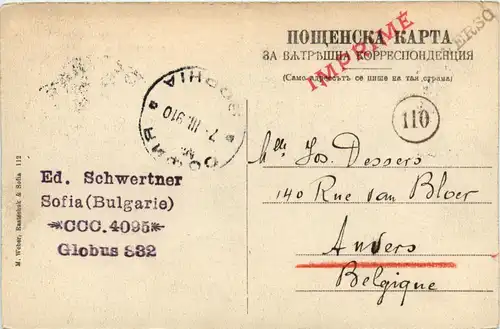 ПОЩЕНСКА КАРТА
ЗА ВѪТРѢШНА КОРРЕСПОНДЕНЦИЯ
(Само адресътъ се пише на тая страна)
IMPRIMÉ
VERSO
СОФИЯ • SOPHIA •
7. III. 910
110
Mlle Jos. Dessers
140 Rue van Bloer
Anvers
Belgique
Ed. Schwertner
Sofia (Bulgarie)
*CCC. 4095*
Globus 832
M. Weber, Rustschuk & Sofia 112